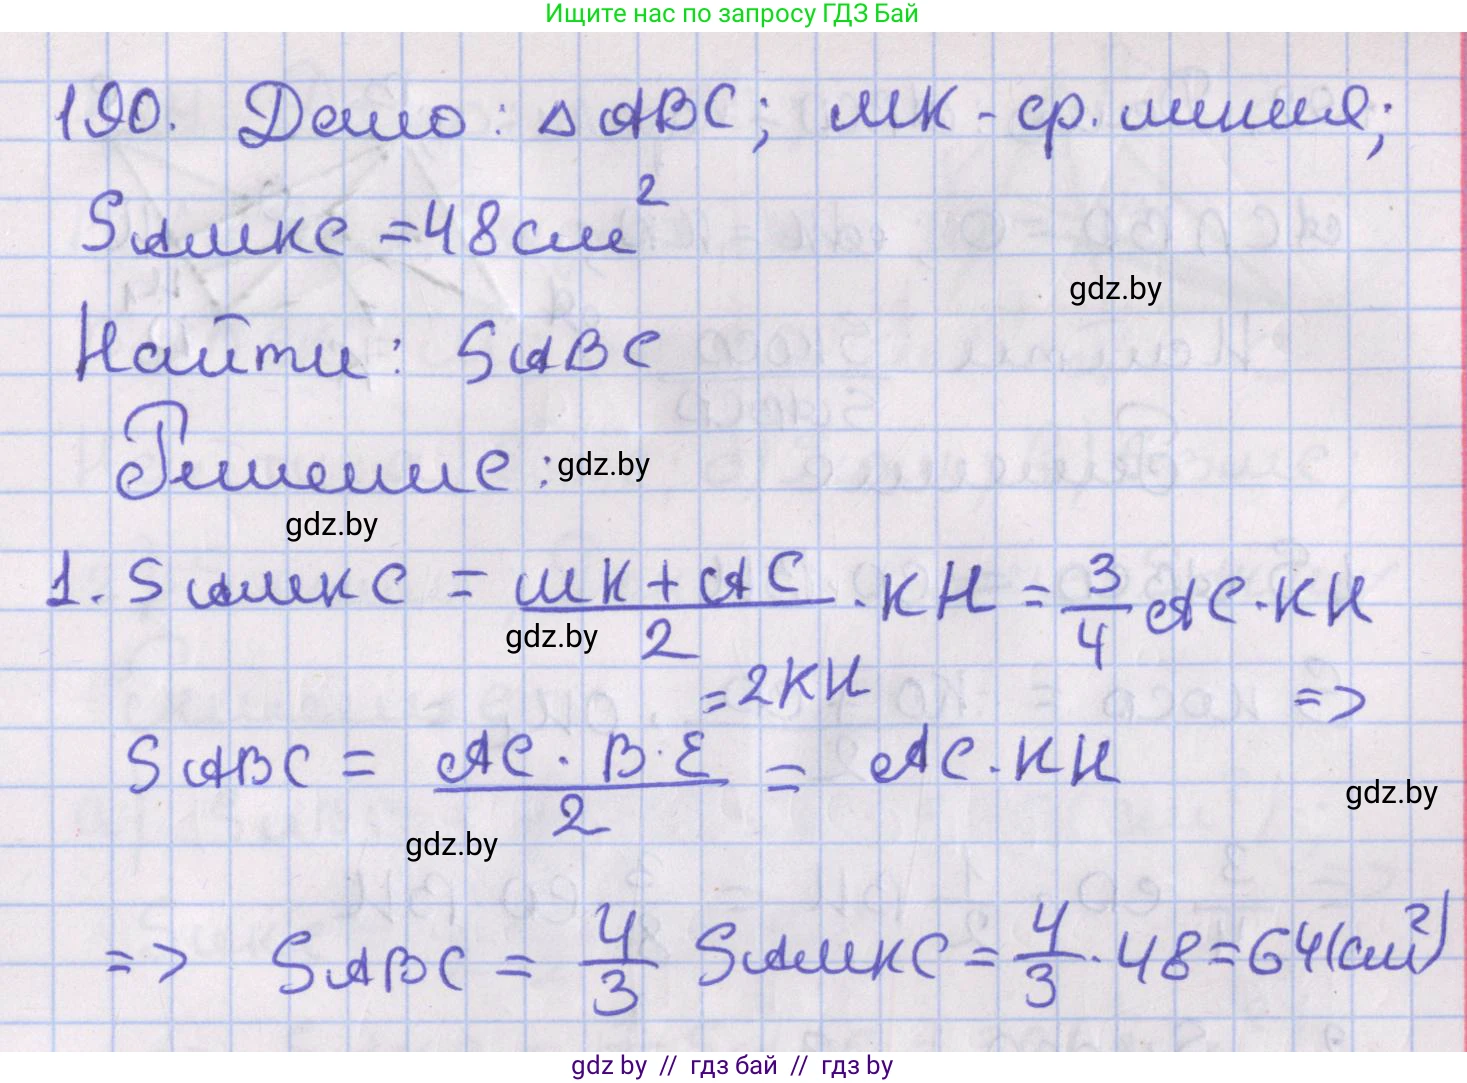 Ищите нас по запросу ГДЗ Бай
190. Дано: △ ABC; MK - ср. линия;
SAMKC = 48 см²
gdz.by
Найти: SABC
Решение:
gdz.by
gdz.by
1. SAMKC = (MK + AC)/2 · KH = 3/4 AC · KH
gdz.by
= 2KH
=>
SABC = (AC · B·E)/2 = AC · KH
gdz.by
gdz.by
=> SABC = 4/3 SAMKC = 4/3 · 48 = 64 (см²)
gdz.by // гдз бай // гдз by